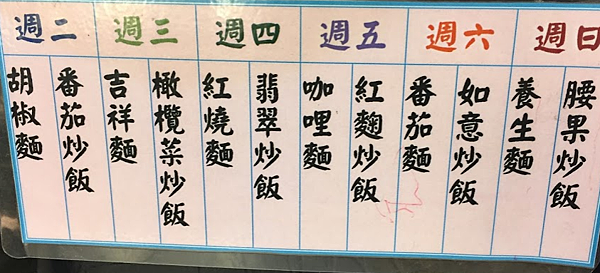 週二
週三
週四
週五
週六
週日
胡椒麵
番茄炒飯
吉祥麵
橄欖菜炒飯
紅燒麵
翡翠炒飯
咖哩麵
紅麴炒飯
番茄麵
如意炒飯
養生麵
腰果炒飯